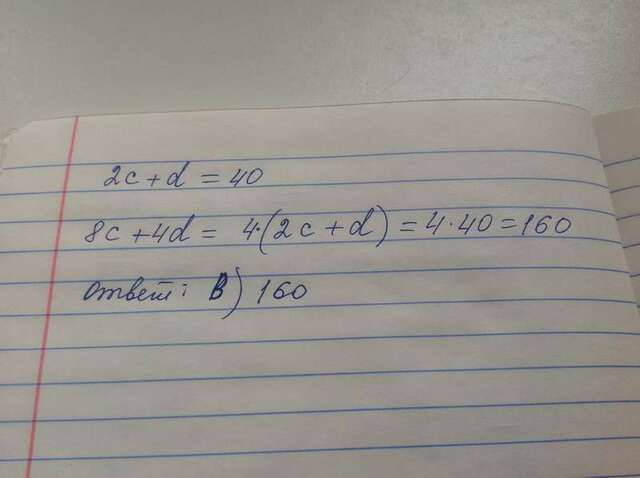 2c + d = 40
8c + 4d = 4·(2c + d) = 4·40 = 160
Ответ: В) 160